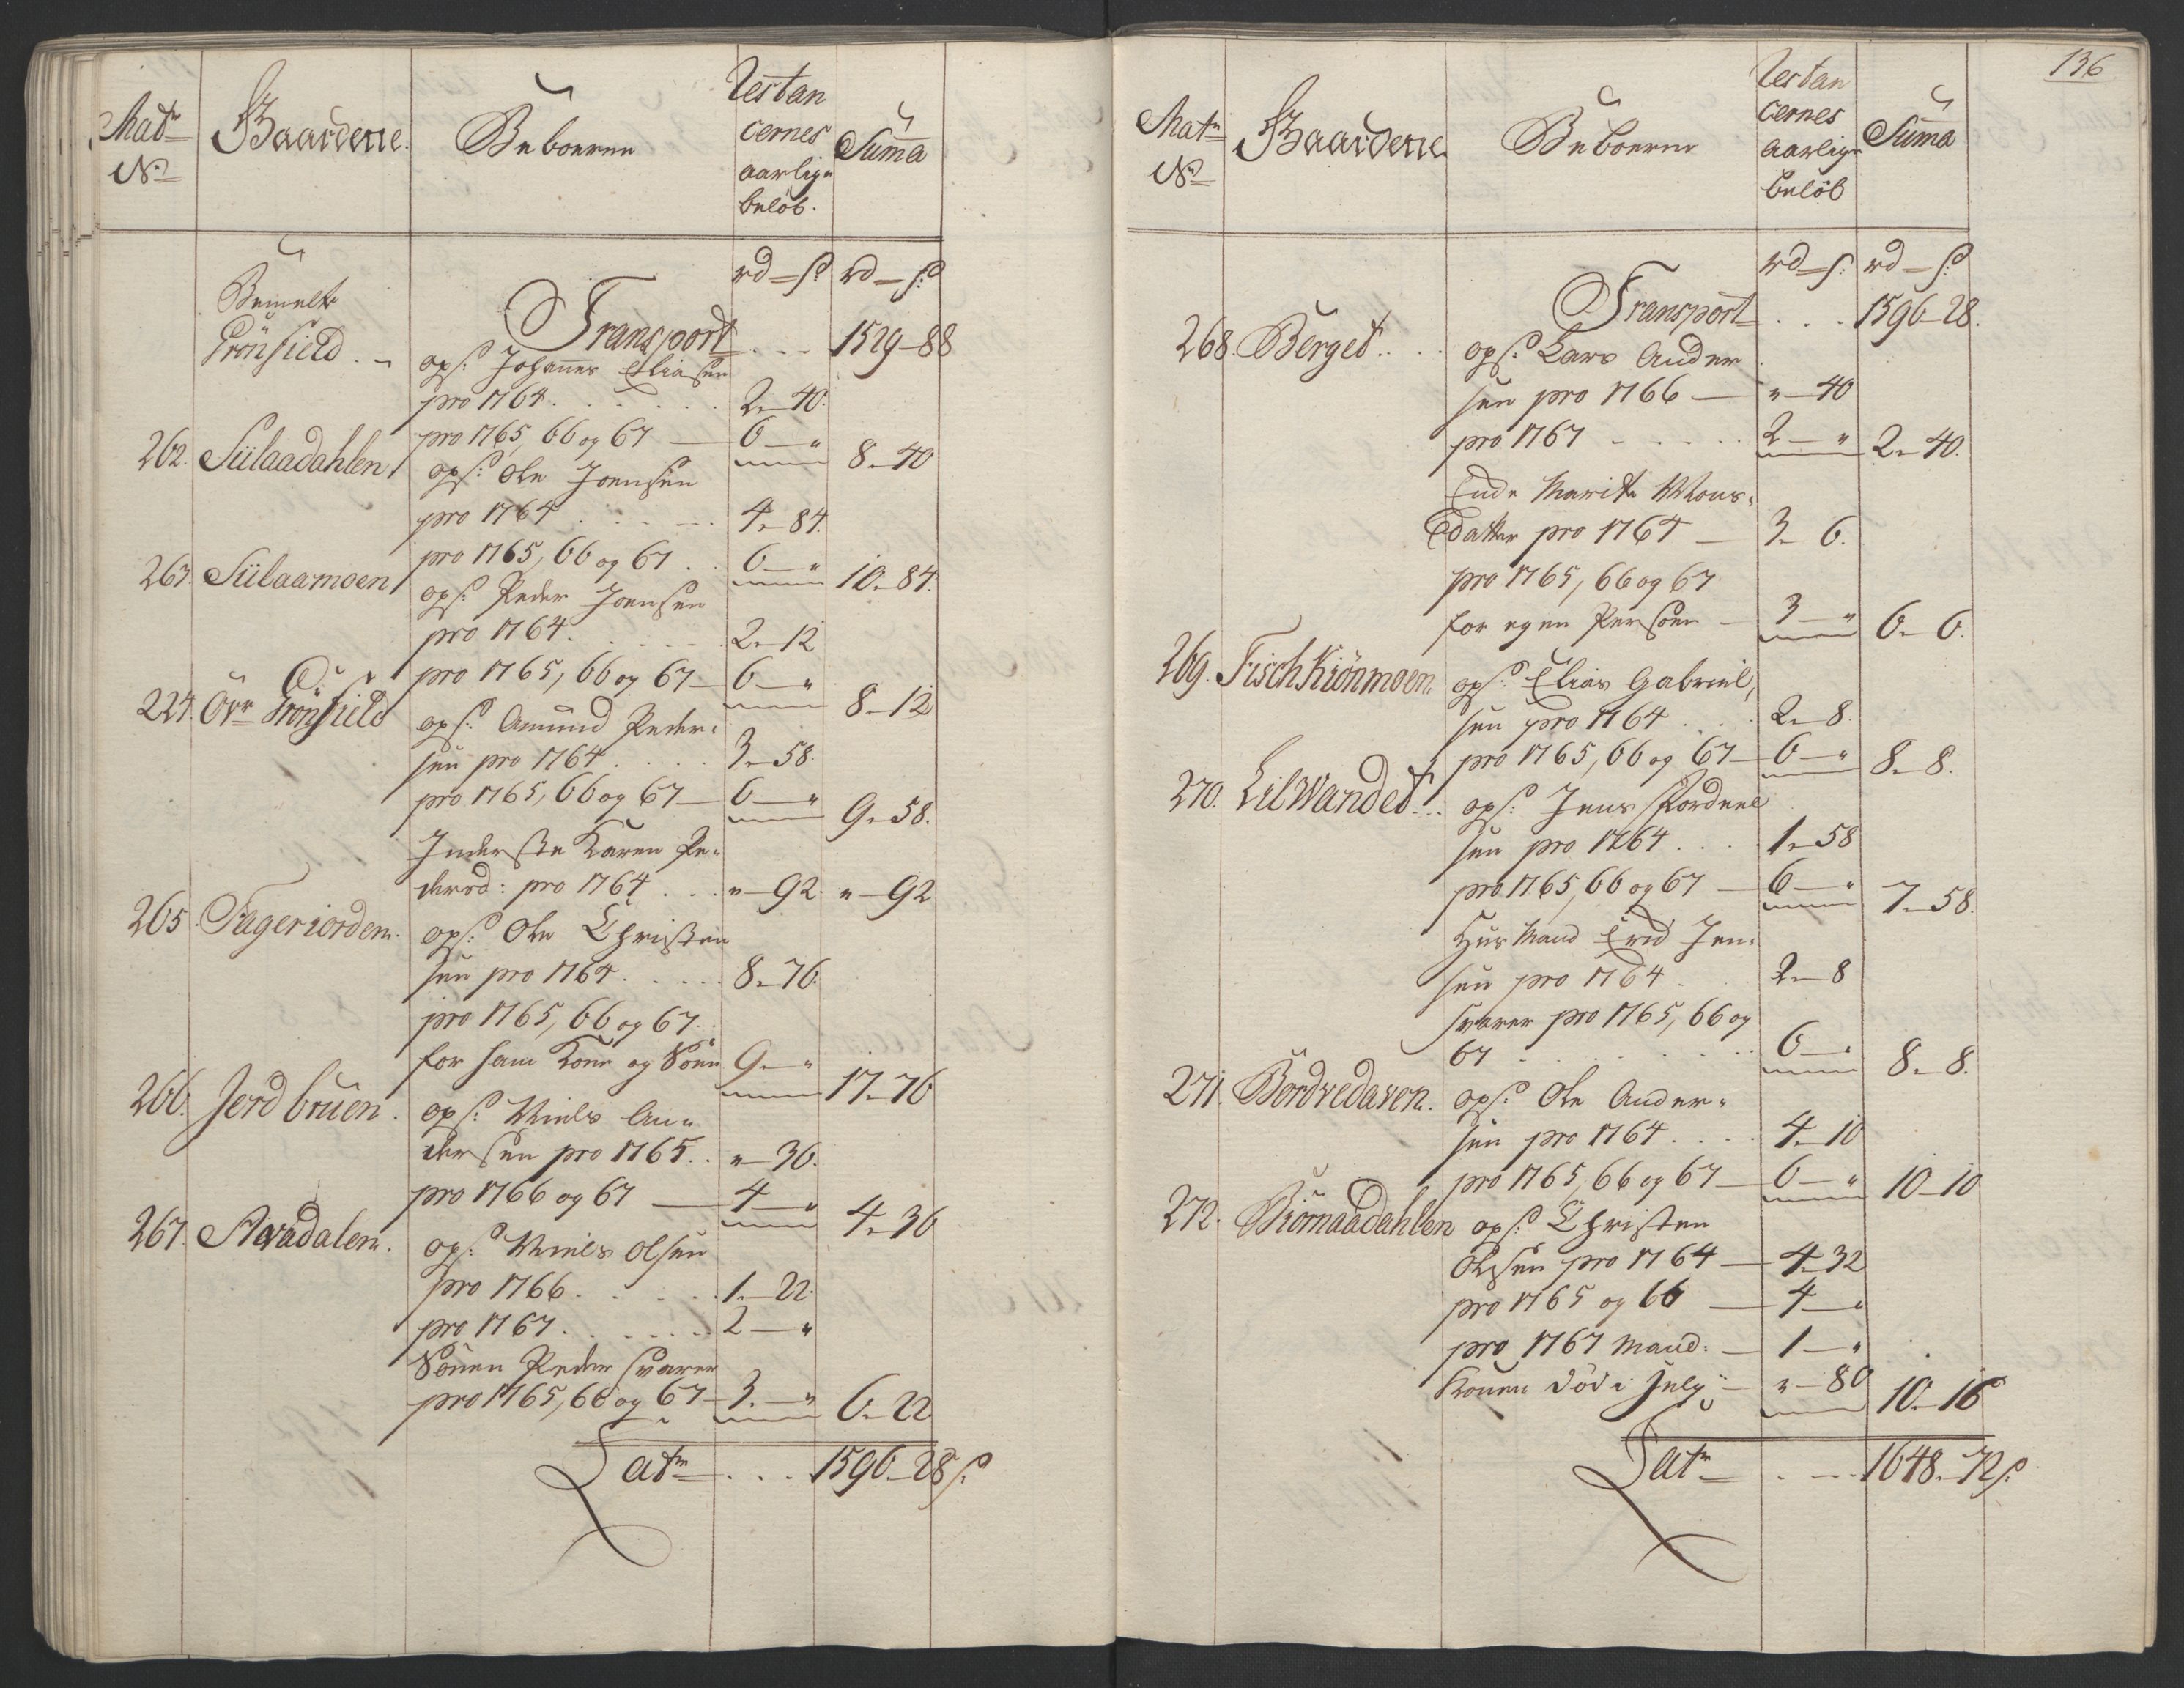 Matr
No
Gaardene.
Beboerne
Restan
cernes
aarlige
beløb.
Suma
rd — s: rd — s:
Bemelte
Grönfield . -
Transport . . . 1529 - 88
ops: Johannes Eliasen
pro 1764 . . . . . 2 - 40.
pro 1765, 66 og 67 — 6 — " 8 - 40
262. Sülaadahlen ops: Ole Joensen
pro 1764 . . . . 4 - 84.
pro 1765, 66 og 67 . . 6 — " 10 - 84.
263. Sülaamoen ops: Peder Joensen
pro 1764 . . . . 2 - 12
pro 1765, 66 og 67 — 6 — " 8 - 12
224. Övr Grönfield ops: Amund Peder-
sen pro 1764 . . . . 3 - 58.
pro 1765, 66 og 67 — 6 — " 9 - 58.
Inderste Karen Pe-
dersd: pro 1764 . . . " - 92. " - 92
265. Fageriorden. ops: Ole Christen
sen pro 1764 . . . . . 8 - 76.
pro 1765, 66 og 67.
for ham Kone og Sönn 9 - " 17 - 76
266. Jerdbruen. ops: Niels An-
dersen pro 1765 . . " - 36.
pro 1766 og 67 — 4 — " 4 - 36
267. Avadalen. ops: Niels Olsen
pro 1766 . . . . . 1 - 22.
pro 1767 . . . . . . 2 — "
Sönen Peder svarer
pro 1765, 66 og 67 — 3. — " 6 - 22
Latr . . . 1596 - 28 s:
136
Matr
No
Gaardene
Beboerne
Restan
cernes
aarlige
beløb
Suma
rd — s: rd — s:
Transport . . . 1596 - 28.
268. Berget . . . ops: Lars Ander
sen pro 1766 — " - 40
pro 1767 . . . . . 2 — " 2 - 40.
Enke Marite Mons-
datter pro 1764 — 3 - 6.
pro 1765, 66 og 67
for egen Persoen — 3 — " 6 - 6.
269. Fischkiönmoen. ops: Elias Gabriel-
sen pro 1764 . . . 2 - 8.
pro 1765, 66 og 67 — 6 — " 8 - 8.
270. Lilwandet . . . ops: Jens
sen pro 1764 . . . . 1 - 58
pro 1765, 66 og 67 — 6 — " 7 - 58.
Huusmand Erid Jen-
sen pro 1764 . 2 - 8
svarer pro 1765, 66 og
67 . . . . . . . . 6 — " 8 - 8.
271. Bordvedaven. ops: Ole Ander-
sen pro 1764 . . . . 4 - 10
pro 1765, 66 og 67 — 6 — " 10 - 10
272. Biörnaadahlen ops: Christen
Olsen pro 1764 — 4 - 32
pro 1765 og 66 — 4 — "
pro 1767 Mand: — 1 — "
Konen död i July — " - 80 10 - 16
Latr . . . 1648 - 72 s: